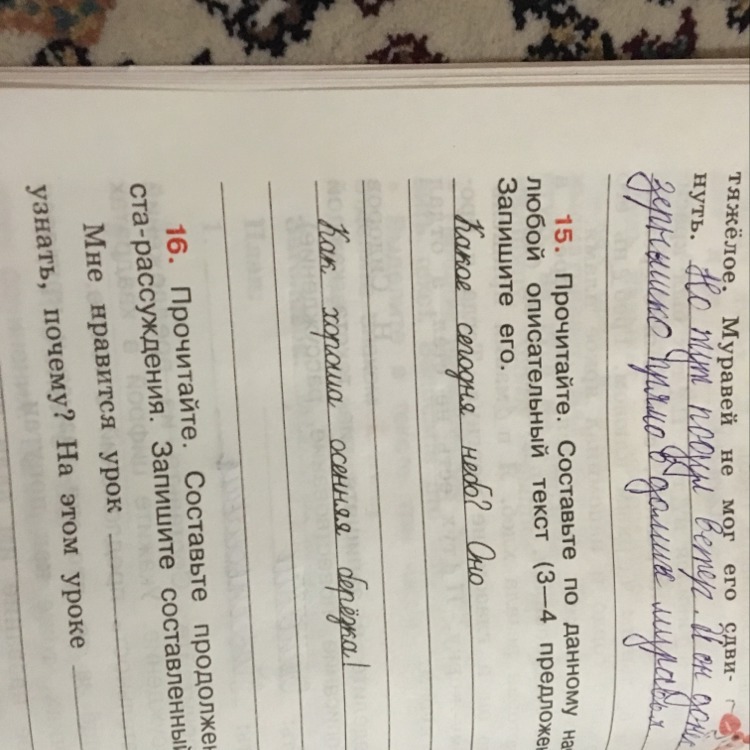 тяжёлое. Муравей не мог его сдви-
нуть. Но тут подул ветер. И он
зёрнышко прямо в домик муравья
15. Прочитайте. Составьте по данному на
любой описательный текст (3—4 предложен
Запишите его.
Какое сегодня небо? Оно
Как хороша осенняя берёзка!
16. Прочитайте. Составьте продолжен
ста-рассуждения. Запишите составленный
Мне нравится урок
узнать, почему? На этом уроке